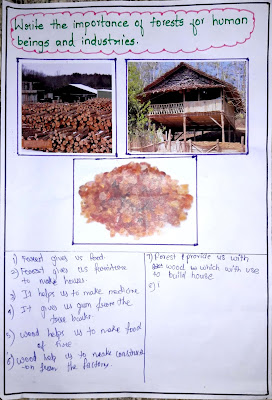 Write the importance of forests for human
beings and industries.
1) Forest gives us food.
2) Forest gives us furniture
to make houses.
3) It helps us to make medicine
4) It gives us gum from the
tree barks.
5) Wood helps us to make food
of fire.
6) Wood help us to make
-on from the factory.
7) Forest provide us with
wood w which with use
to build house
8) 1